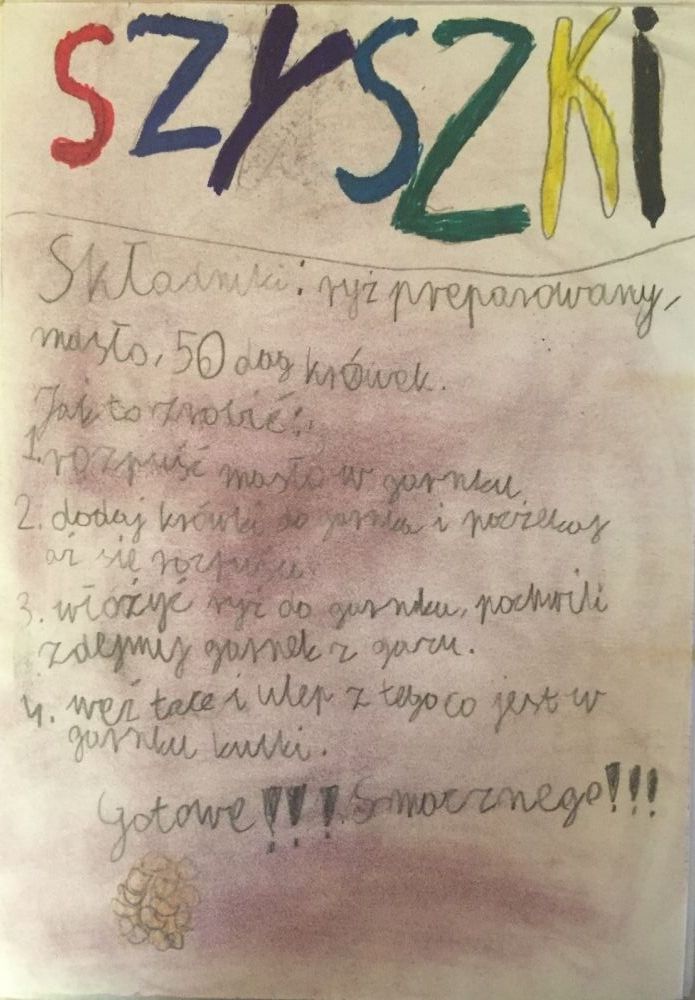 SZYSZKI
Składniki: ryż preparowany,
masło, 50 dag krówek.
Jak to zrobić:
1. rozpuść masło w garnku
2. dodaj krówki do garnka i poczekaj
aż się rozpuszu
3. włóżyć ryż do garnku, pochwili
zdejmij garnek z gazu.
4. weź tace i ulep z tego co jest w
garnku kulki.
Gotowe!!! Smacznego!!!